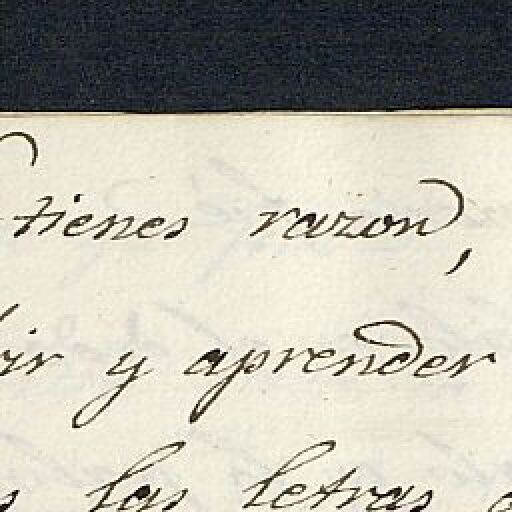 tienes razon,
y aprender
las letras